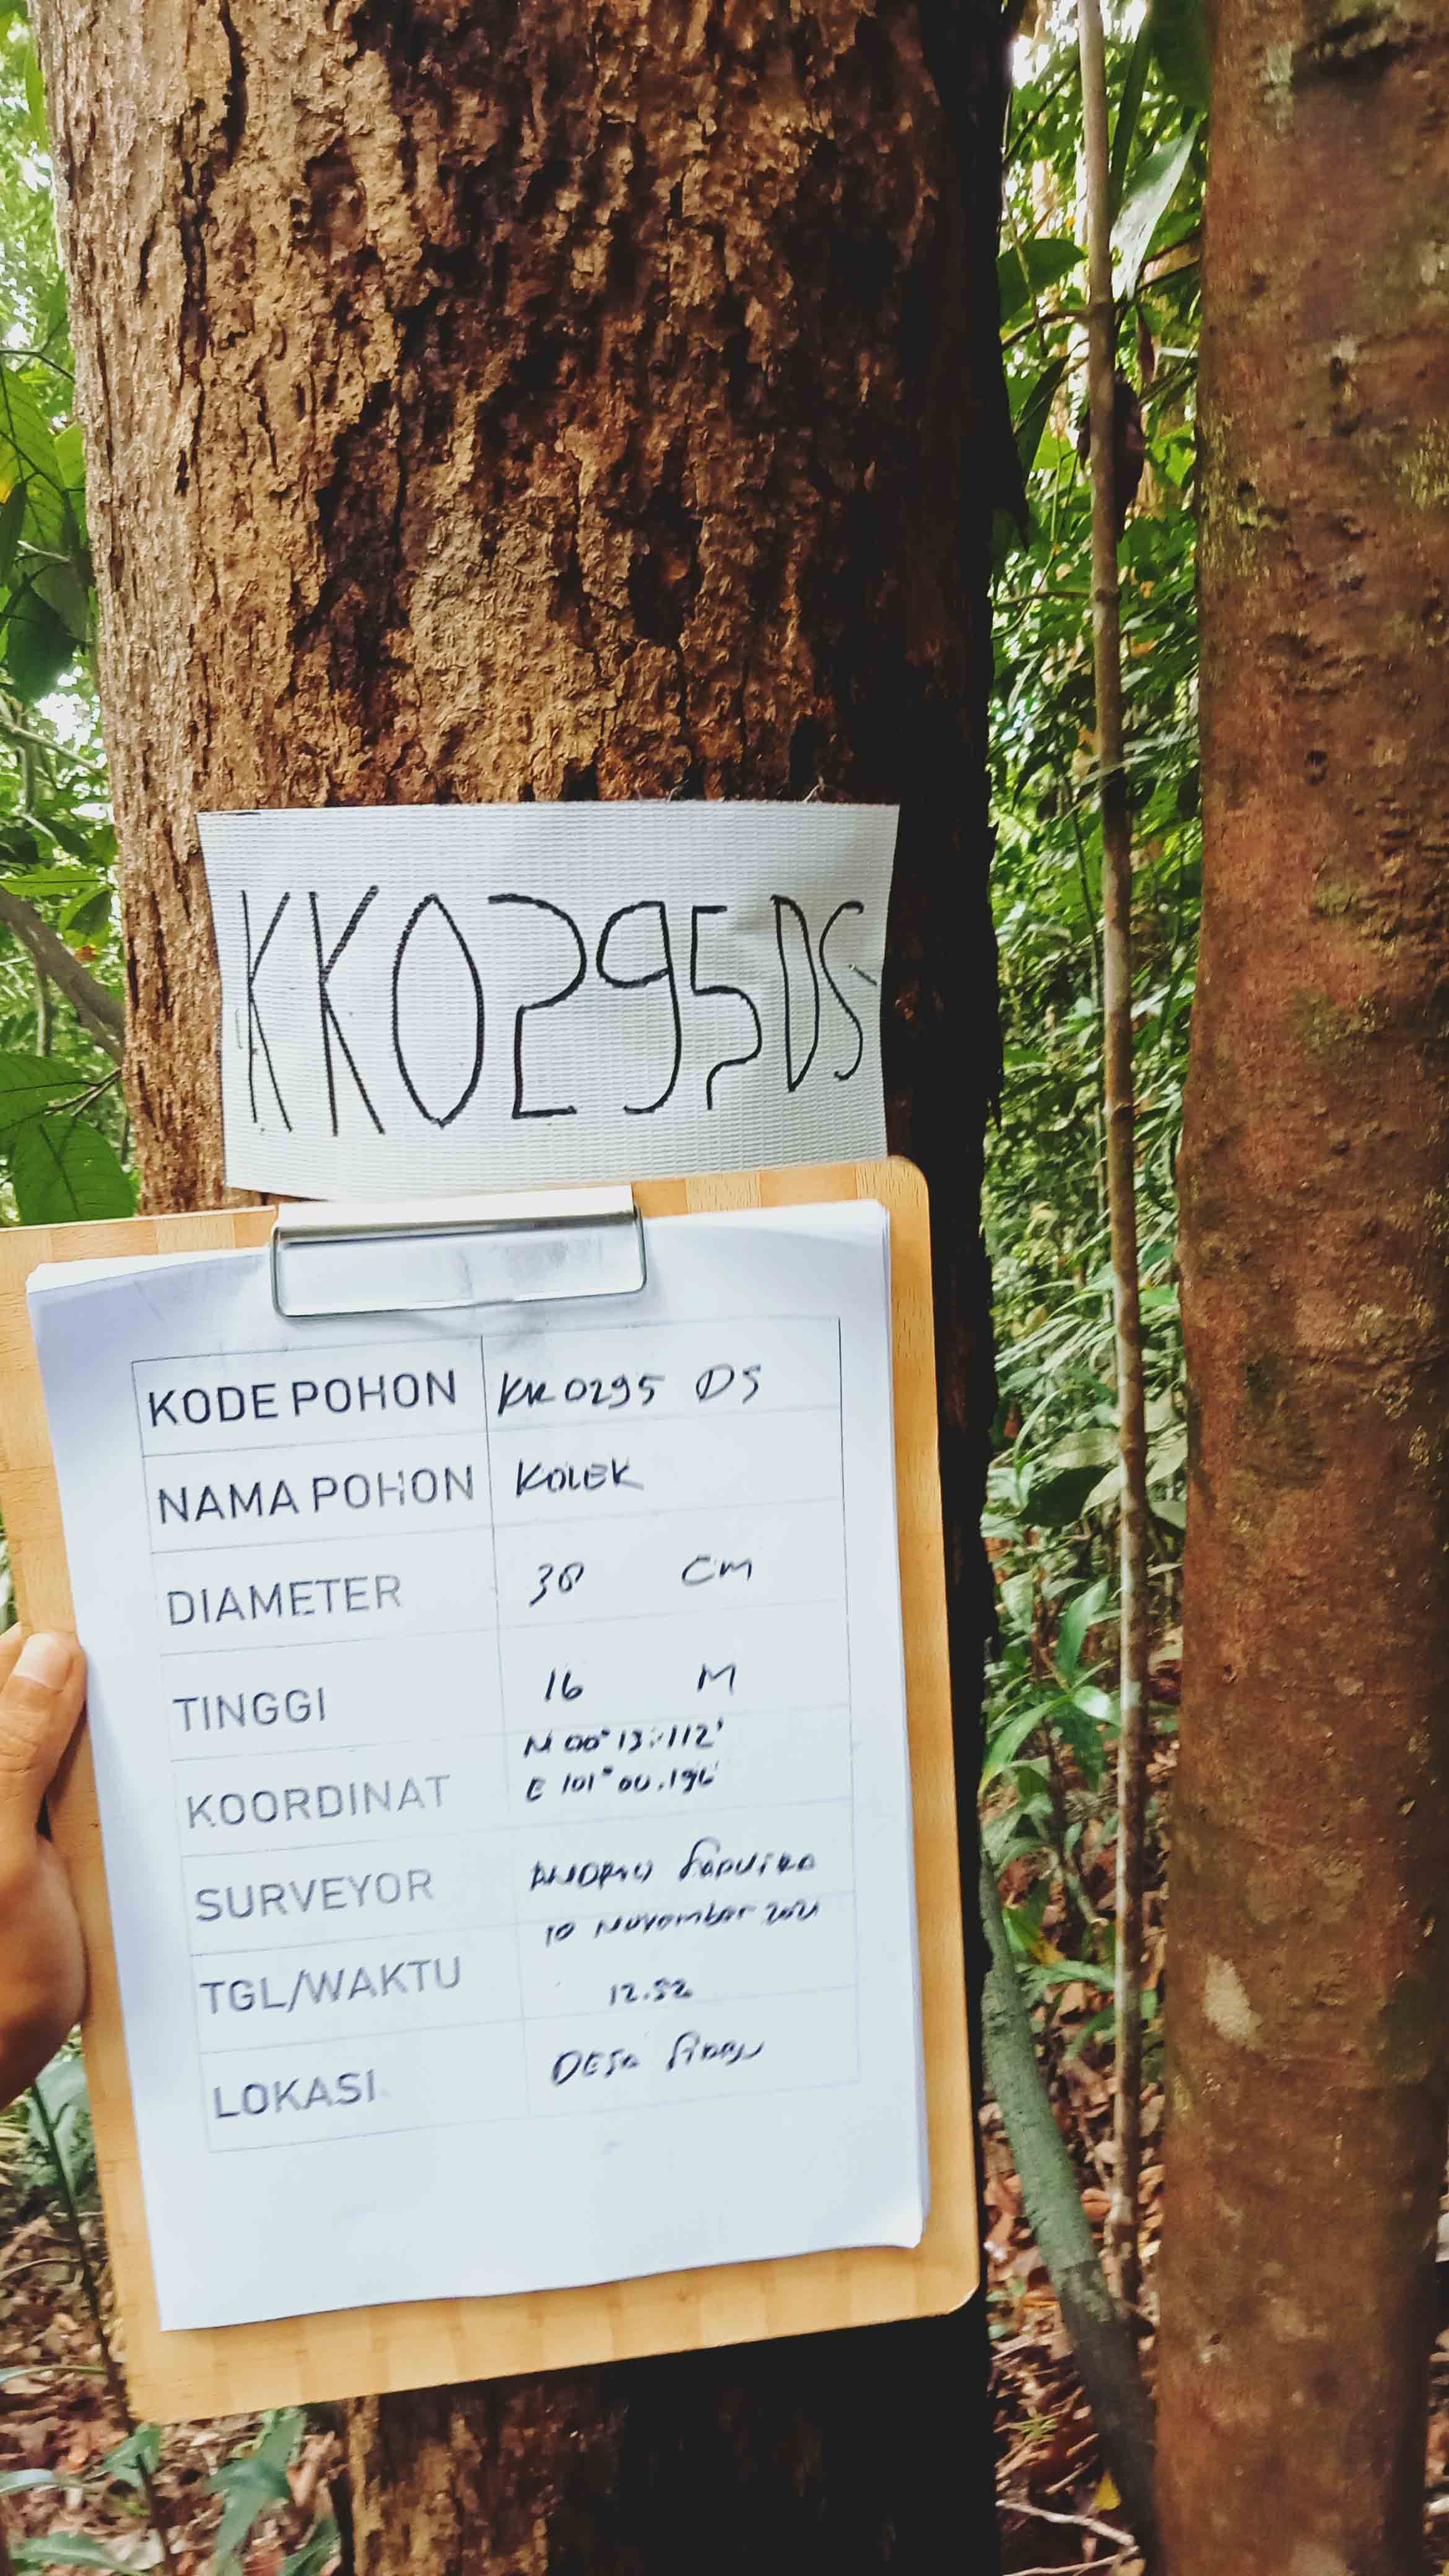 KKO295DS
KODE POHON KK 0295 DS
NAMA POHON KOLEK
DIAMETER 38 CM
TINGGI 16 M
KOORDINAT N 00° 13.112'
E 101° 00.196'
SURVEYOR
TGL/WAKTU 10 November 2021
12.52
LOKASI DESA